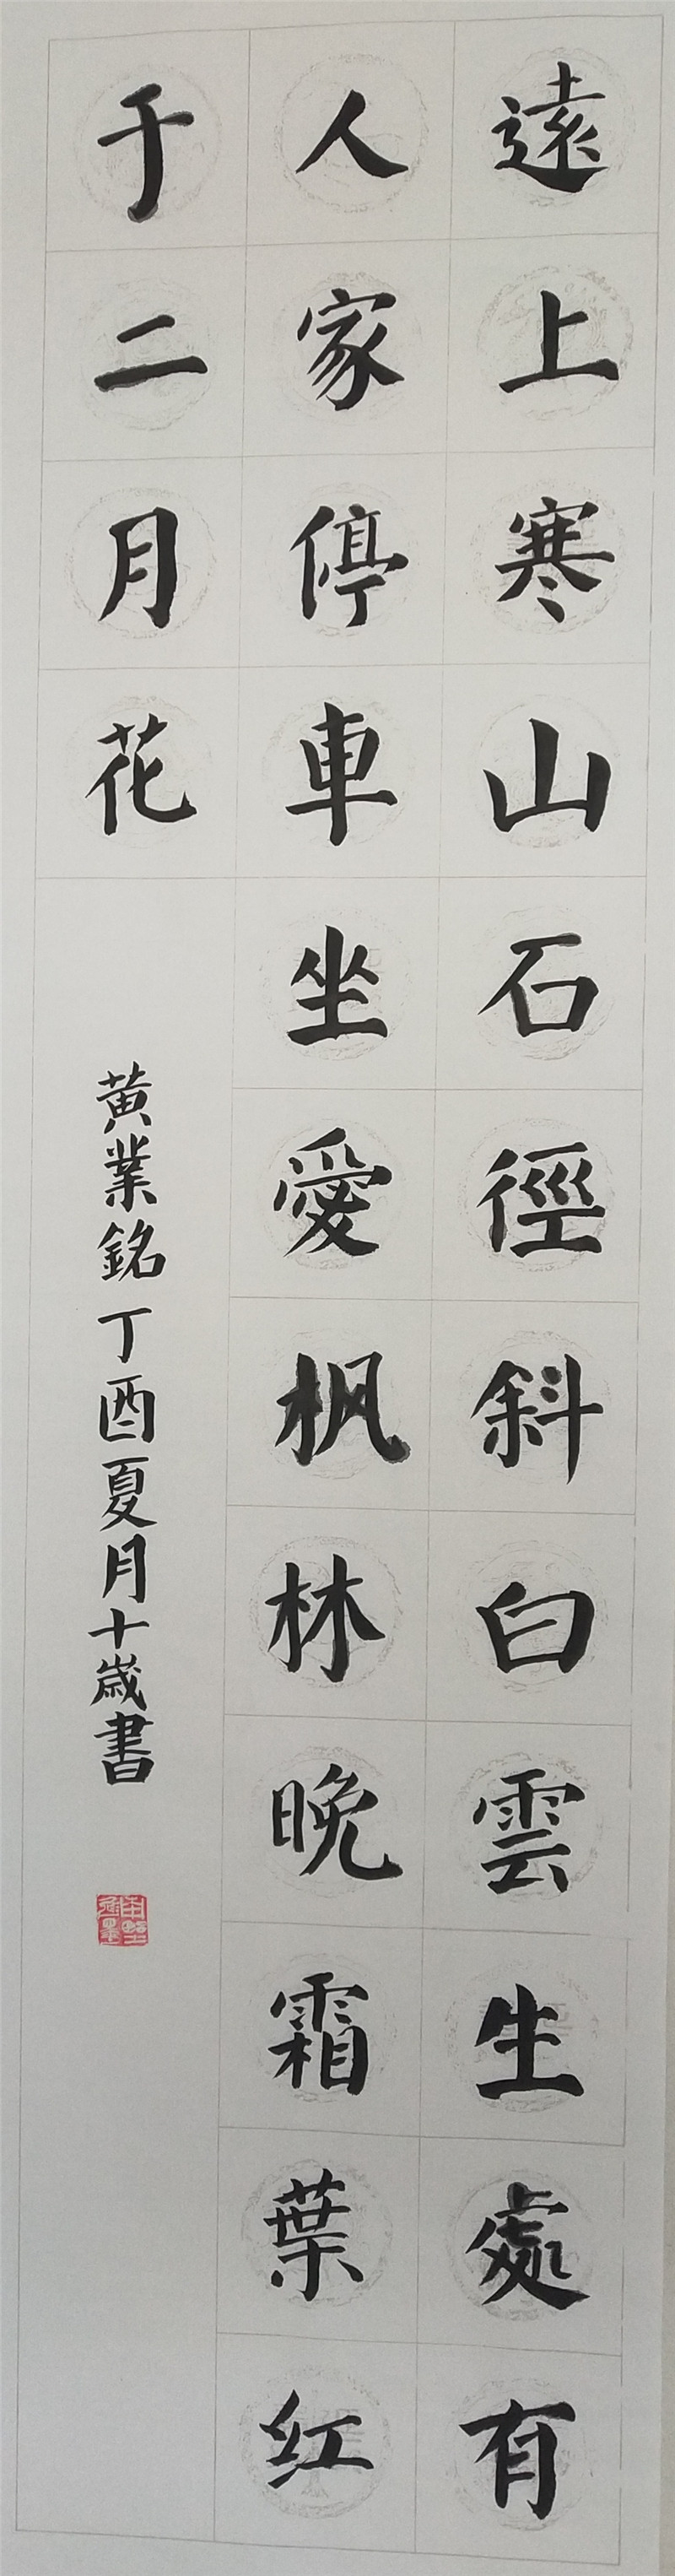 遠上寒山石徑斜白雲生處有
人家停車坐愛枫林晚霜葉红
于二月花
黄業銘丁酉夏月十歲書